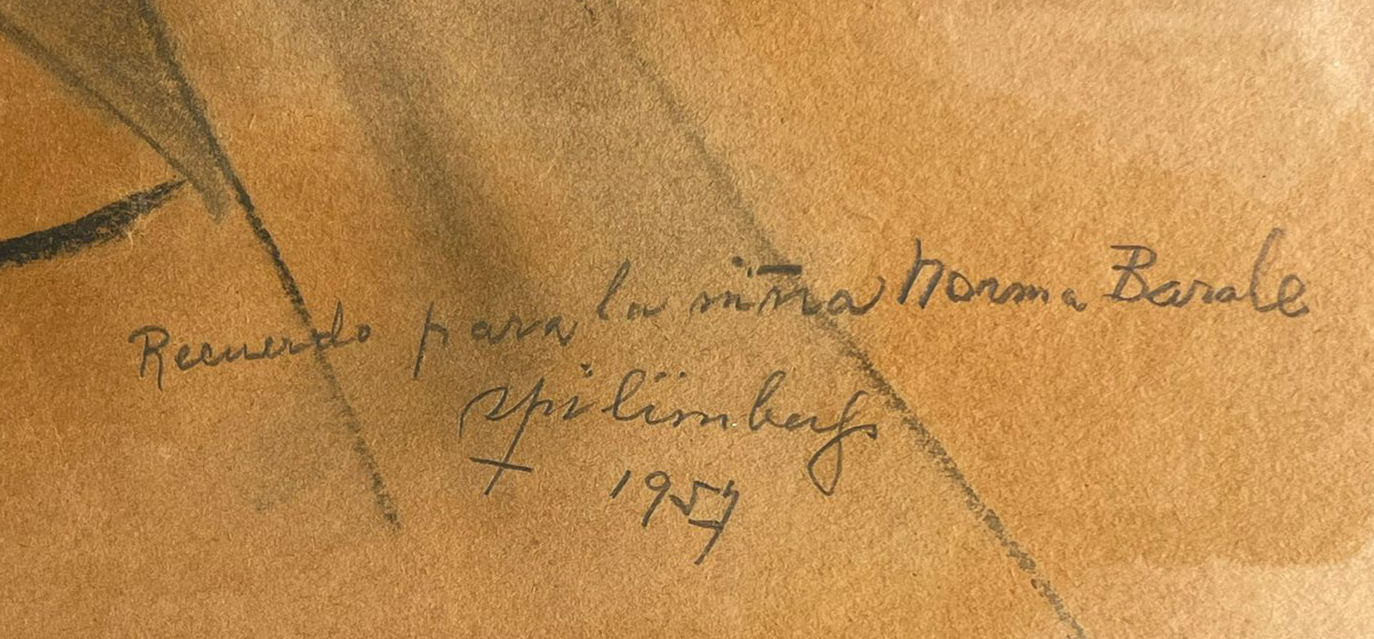 Recuerdo para la niña Norma Barale
Spilimbergo
1957